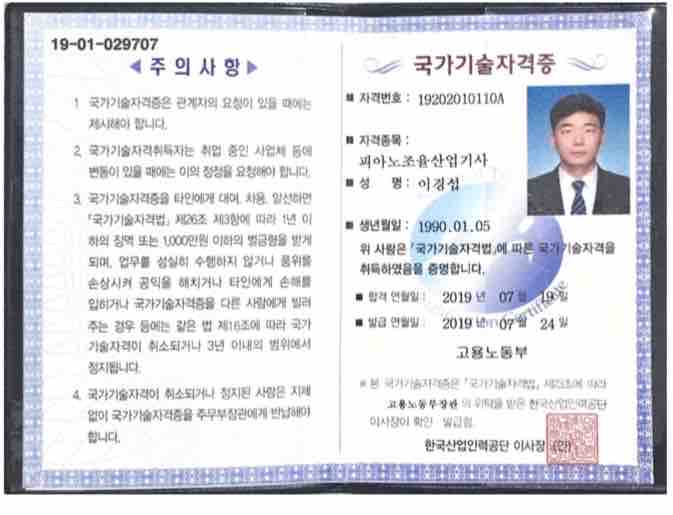 19-01-029707
◀ 주의사항 ▶
1. 국가기술자격증은 관계자의 요청이 있을 때에는
제시해야 합니다.
2. 국가기술자격취득자는 취업 중인 사업체 등에
변동이 있을 때에는 이의 정정을 요청해야 합니다.
3. 국가기술자격증을 타인에게 대여, 차용, 알선하면
「국가기술자격법」 제26조 제3항에 따라 1년 이
하의 징역 또는 1,000만원 이하의 벌금형을 받게
되며, 업무를 성실히 수행하지 않거나 품위를
손상시켜 공익을 해치거나 타인에게 손해를
입히거나 국가기술자격증을 다른 사람에게 빌려
주는 경우 등에는 같은 법 제16조에 따라 국가
기술자격이 취소되거나 3년 이내의 범위에서
정지됩니다.
4. 국가기술자격이 취소되거나 정지된 사람은 지체
없이 국가기술자격증을 주무부장관에게 반납해야
합니다.
국가기술자격증
■ 자격번호 : 19202010110A
■ 자격종목 :
피아노조율산업기사
■ 성 명 : 이경섭
■ 생년월일 : 1990.01.05
위 사람은 「국가기술자격법」에 따른 국가기술자격을
취득하였음을 증명합니다.
■ 합격 연월일 : 2019 년 07 월 19 일
■ 발급 연월일 : 2019 년 07 월 24 일
Certificate
고용노동부
※ 본 국가기술자격증은 「국가기술자격법」 제23조에 따라
고용노동부장관의 위탁을 받은 한국산업인력공단
이사장이 확인·발급함.
한국산업인력공단 이사장 (인)